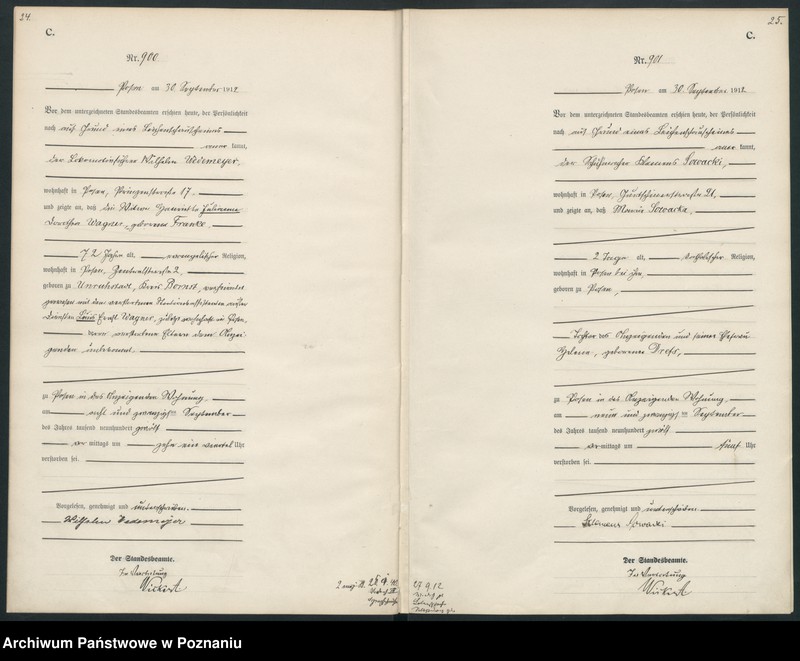 24.
C.
Nr. 900
Posen am 30 September 1912
Vor dem unterzeichneten Standesbeamten erschien heute, der Persönlichkeit
nach auf Grund eines Leichenschauscheines
aner kannt,
der Lokomotivführer Wilhelm Wedemeyer,
wohnhaft in Posen, Prinzenstraße 17
und zeigte an, daß die Witwe Henriette Julianna
Dorothea Wagner, geborene Franke,
72 Jahre alt, evangelischer Religion,
wohnhaft in Posen, 2,
geboren zu Unruhstadt, Kreis Bomst, verheiratet
gewesen mit dem verstorbenen
Louis Ernst Wagner, zuletzt wohnhaft in Posen,
deren verstorbene Eltern dem Anzei-
genden unbekannt,
zu Posen in des Anzeigenden Wohnung
am acht und zwanzigsten September
des Jahres tausend neunhundert zwölf
vor mittags um zehn ein viertel Uhr
verstorben sei.
Vorgelesen, genehmigt und unterschrieben.
Wilhelm Wedemeyer
Der Standesbeamte.
In Vertretung
25.
C.
Nr. 901
Posen am 30. September 1912
Vor dem unterzeichneten Standesbeamten erschien heute, der Persönlichkeit
nach auf Grund eines Leichenschauscheines
aner kannt,
der Schuhmacher Klemens Sowacki,
wohnhaft in Posen, 21,
und zeigte an, daß Maria Sowacka,
2 Tage alt, katholischer Religion,
wohnhaft in Posen bei ihm,
geboren zu Posen,
Tochter des Anzeigenden und seiner Ehefrau
Helene, geborenen Drefs,
zu Posen in des Anzeigenden Wohnung
am neun und zwanzigsten September
des Jahres tausend neunhundert zwölf
vor mittags um fünf Uhr
verstorben sei.
Vorgelesen, genehmigt und unterschrieben.
Klemens Sowacki
Der Standesbeamte.
In Vertretung
27 9 12
Archiwum Państwowe w Poznaniu